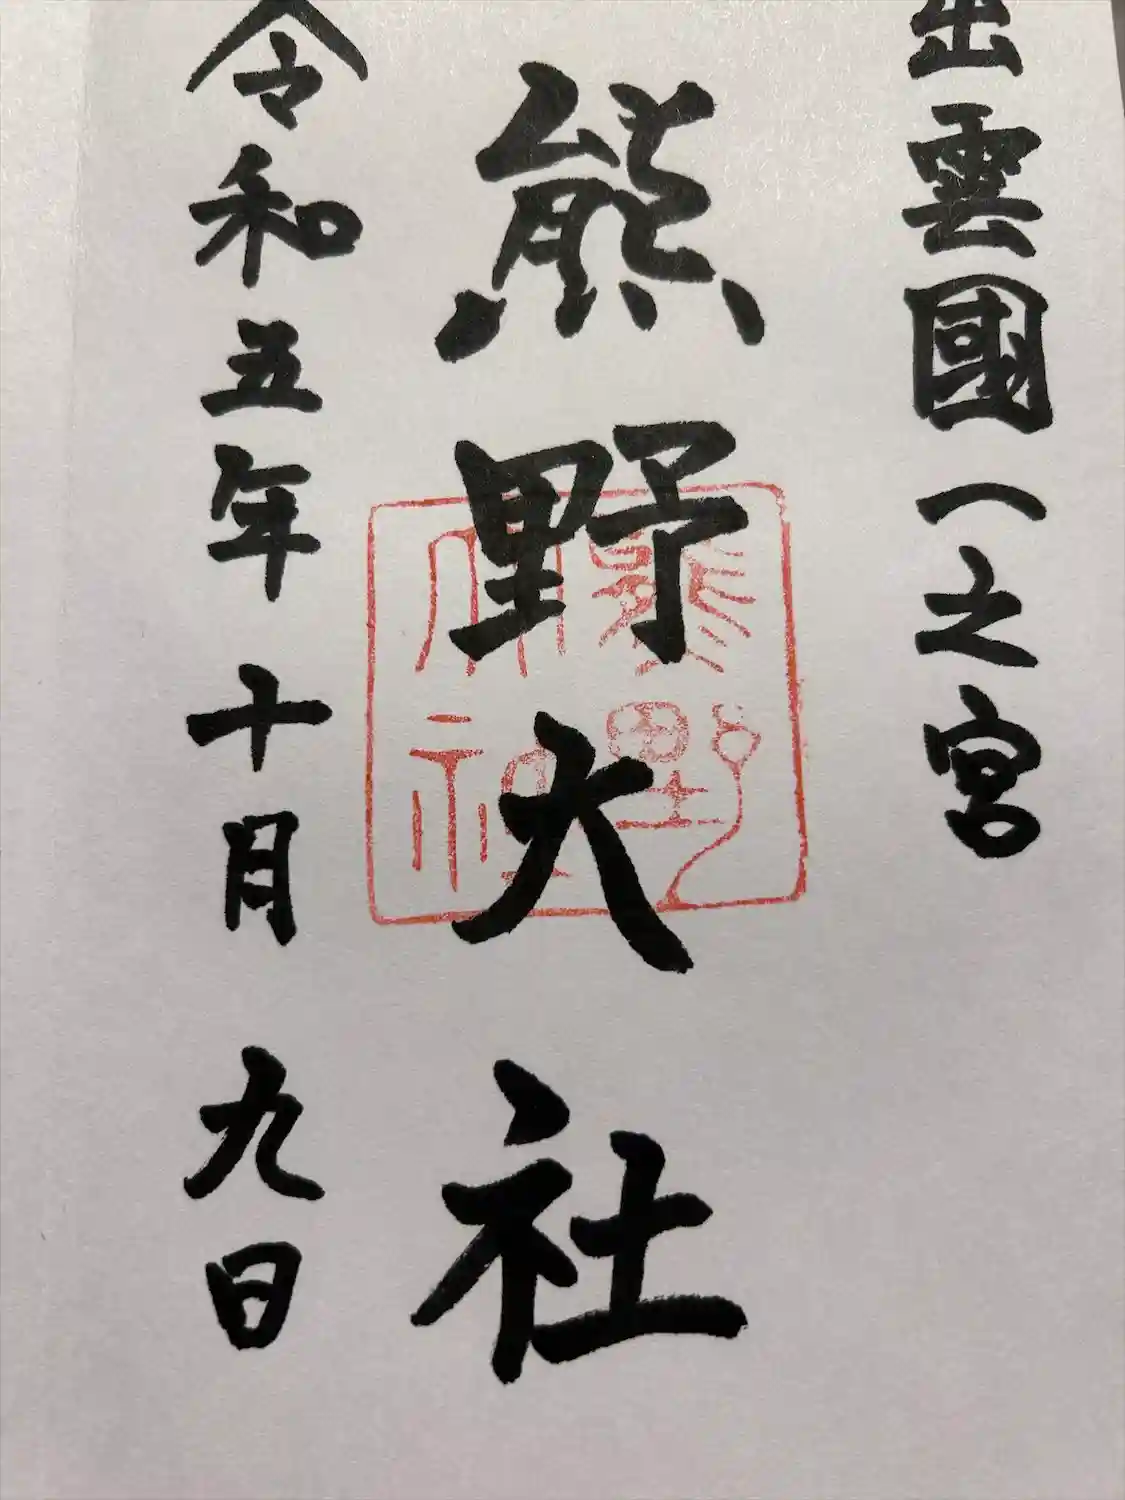 出雲國一之宮
熊野大社
令和五年十月九日
熊野大社